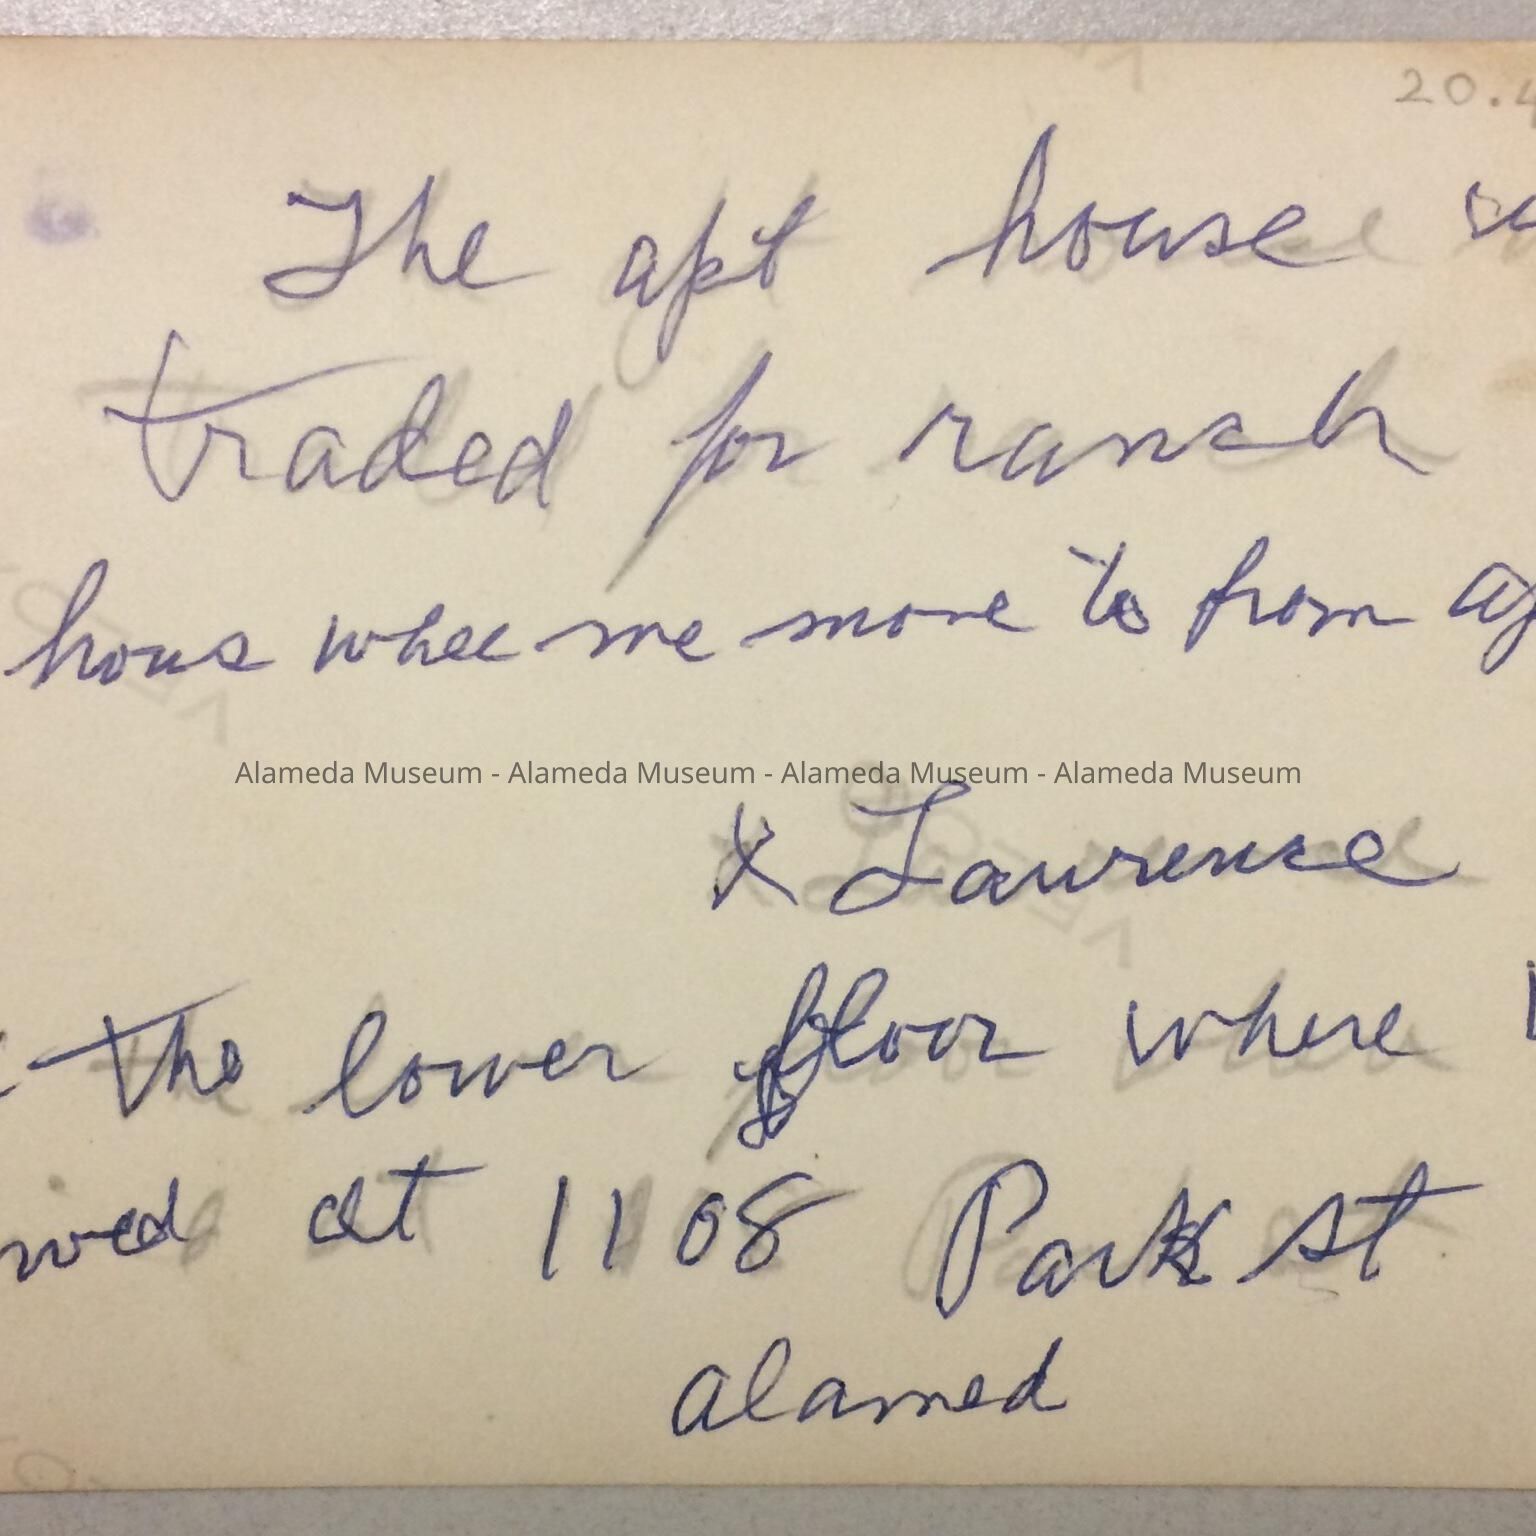 20.4
The apt house
traded for ranch
hous whee we move to from ap
Alameda Museum - Alameda Museum - Alameda Museum - Alameda Museum
x Lawrence
the lower floor where
at 1108 Park St
alamed